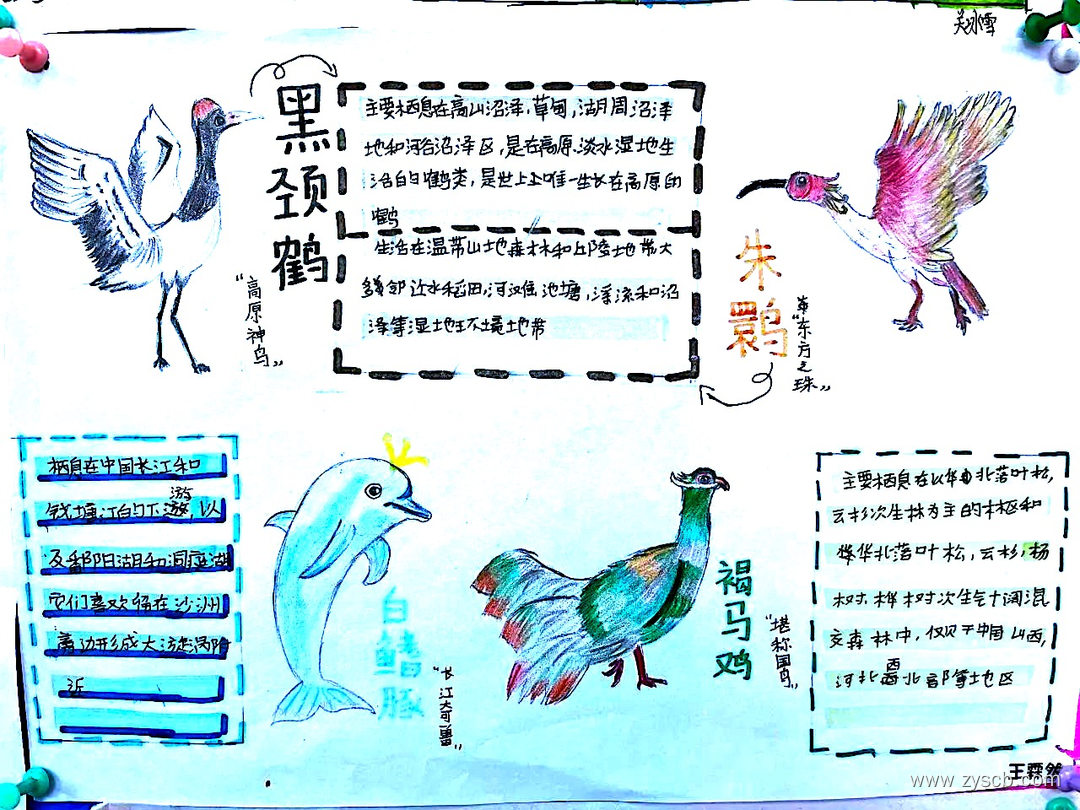 关冰雪
黑颈鹤
"高原神鸟"
主要栖息在高山沼泽,草甸,湖周沼泽
地和河谷沼泽区,是在高原淡水湿地生
活的鹤类,是世上唯一生长在高原的
鹤
生活在温带山地森林和丘陵地带大
多邻近水稻田,河滩池塘,溪流和沼
泽等湿地环境地带
朱鹮
"东方之珠"
栖息在中国长江和
钱塘江的下游,以
及鄱阳湖和洞庭湖
它们喜欢徘在沙洲
形成大
近
白鳍豚
"长江大可兽"
褐马鸡
"堪称国鸟"
主要栖息在以华北落叶松,
云杉次生林为主的林区和
华北落叶松,云杉,杨
树,桦树次生针阔混
交森林中,仅见于中国山西,
河北西北部等地区
王霖然
www.zyscb.com